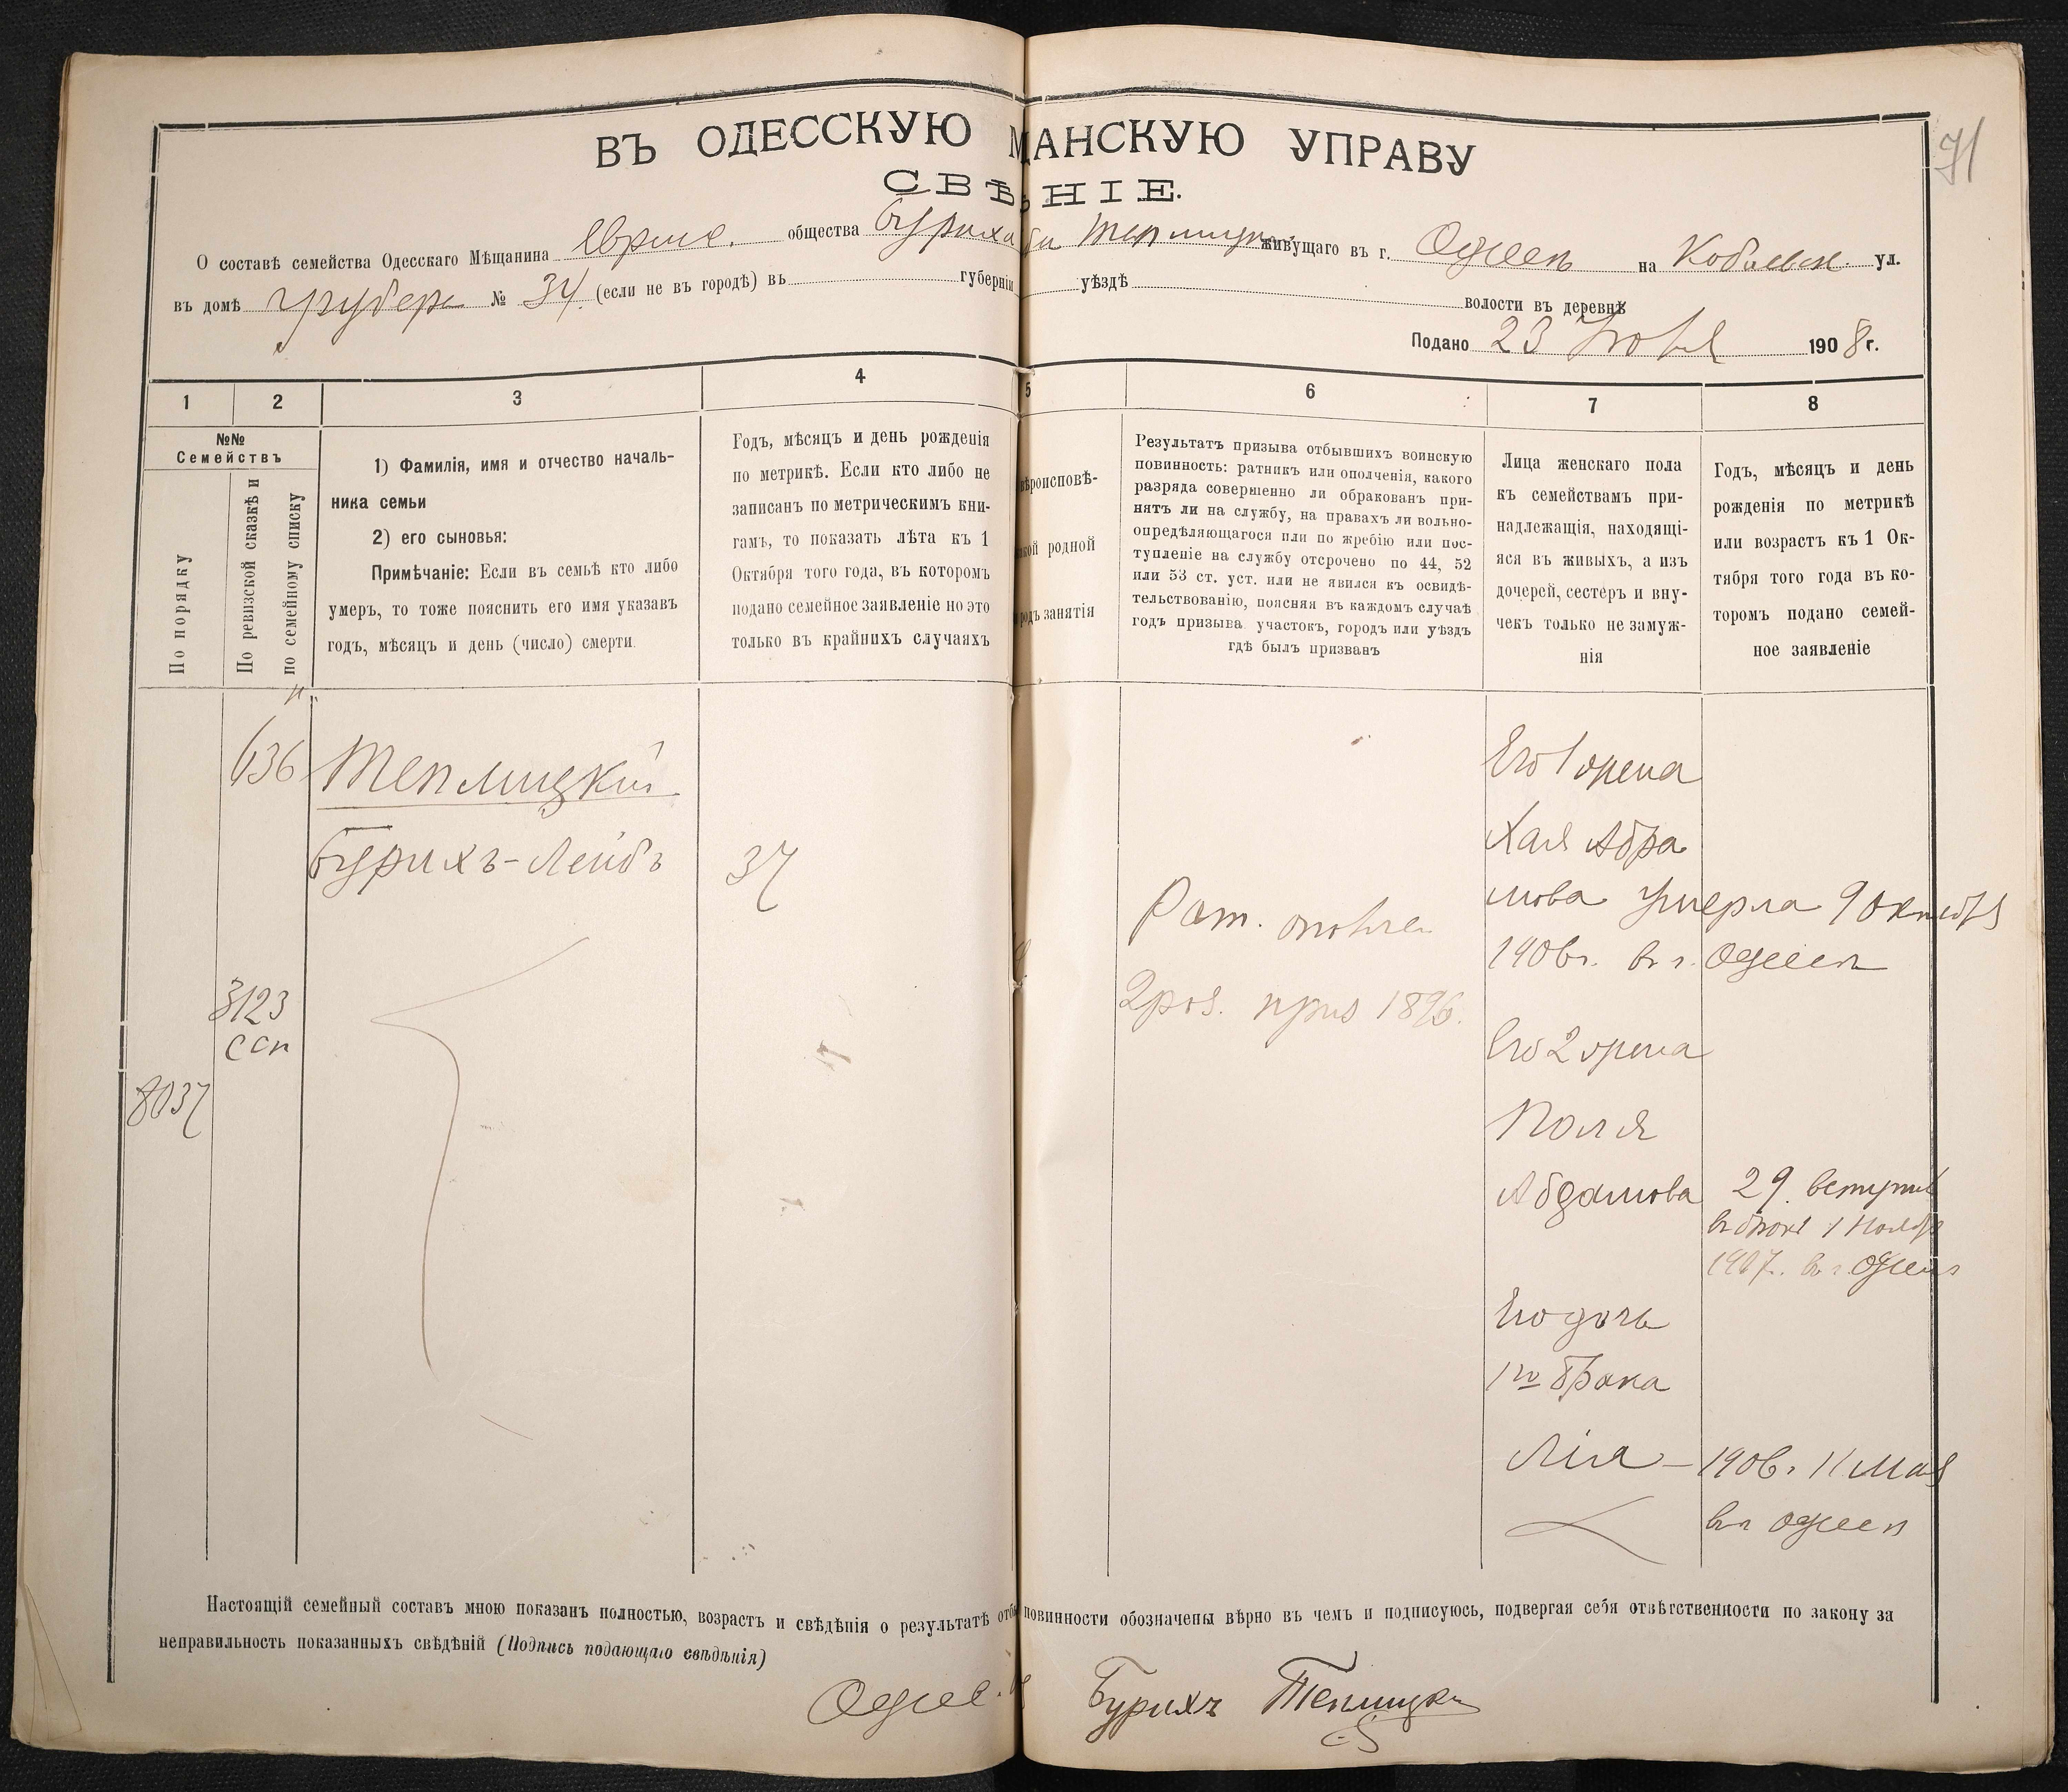 71
ВЪ ОДЕССКУЮ МАНСКУЮ УПРАВУ
СВѢ НІЕ.
О составѣ семейства Одесскаго Мѣщанина общества Буриха живущаго въ г. Одессѣ на ул.
въ домѣ № 34. (если не въ городѣ) въ губерніи уѣздѣ волости въ деревнѣ
Подано 23 1908 г.
1 2 3 4 5 6 7 8
№№
Семействъ
По порядку
По ревизской сказкѣ и
по семейному списку
1) Фамилія, имя и отчество началь-
ника семьи
2) его сыновья:
Примѣчаніе: Если въ семьѣ кто либо
умеръ, то тоже пояснить его имя указавъ
годъ, мѣсяцъ и день (число) смерти.
Годъ, мѣсяцъ и день рожденія
по метрикѣ. Если кто либо не
записанъ по метрическимъ кни-
гамъ, то показать лѣта къ 1
Октября того года, въ которомъ
подано семейное заявленіе но это
только въ крайнихъ случаяхъ
вѣроисповѣ-
родной
занятія
Результатъ призыва отбывшихъ воинскую
повинность: ратникъ или ополченія, какого
разряда совершенно ли обракованъ при-
нятъ ли на службу, на правахъ ли вольно-
опредѣляющагося или по жребію или пос-
тупленіе на службу отсрочено по 44, 52
или 53 ст. уст. или не явился къ освидѣ-
тельствованію, поясняя въ каждомъ случаѣ
годъ призыва участокъ, городъ или уѣздъ
гдѣ былъ призванъ
Лица женскаго пола
къ семействамъ при-
надлежащія, находящі-
яся въ живыхъ, а изъ
дочерей, сестеръ и вну-
чекъ только не замуж-
нія
Годъ, мѣсяцъ и день
рожденія по метрикѣ
или возрастъ къ 1 Ок-
тября того года въ ко-
торомъ подано семей-
ное заявленіе
636
Теплицкій
Бурихъ-Лейбъ
37
3123
ссп
8037
Рат. ополчен
2 раз. приз 1896.
Его 1 жена
Хая Абра
мова умерла 9 октября
1906 г. въ г. Одессѣ
Его 2 жена
Поля
Абрамова 29. вступив
въ бракъ 1 Ноября
1907. въ г. Одессѣ
Его дочь
1го брака
Лія - 1906 г. 11 мая
въ г Одессѣ
Настоящій семейный составъ мною показанъ полностью, возрастъ и свѣдѣнія о результатѣ отбы повинности обозначены вѣрно въ чемъ и подписуюсь, подвергая себя отвѣтственности по закону за
неправильность показанныхъ свѣдѣній (Подпись подающаго свѣдѣнія)
Одес. Бурихъ Теплицкій